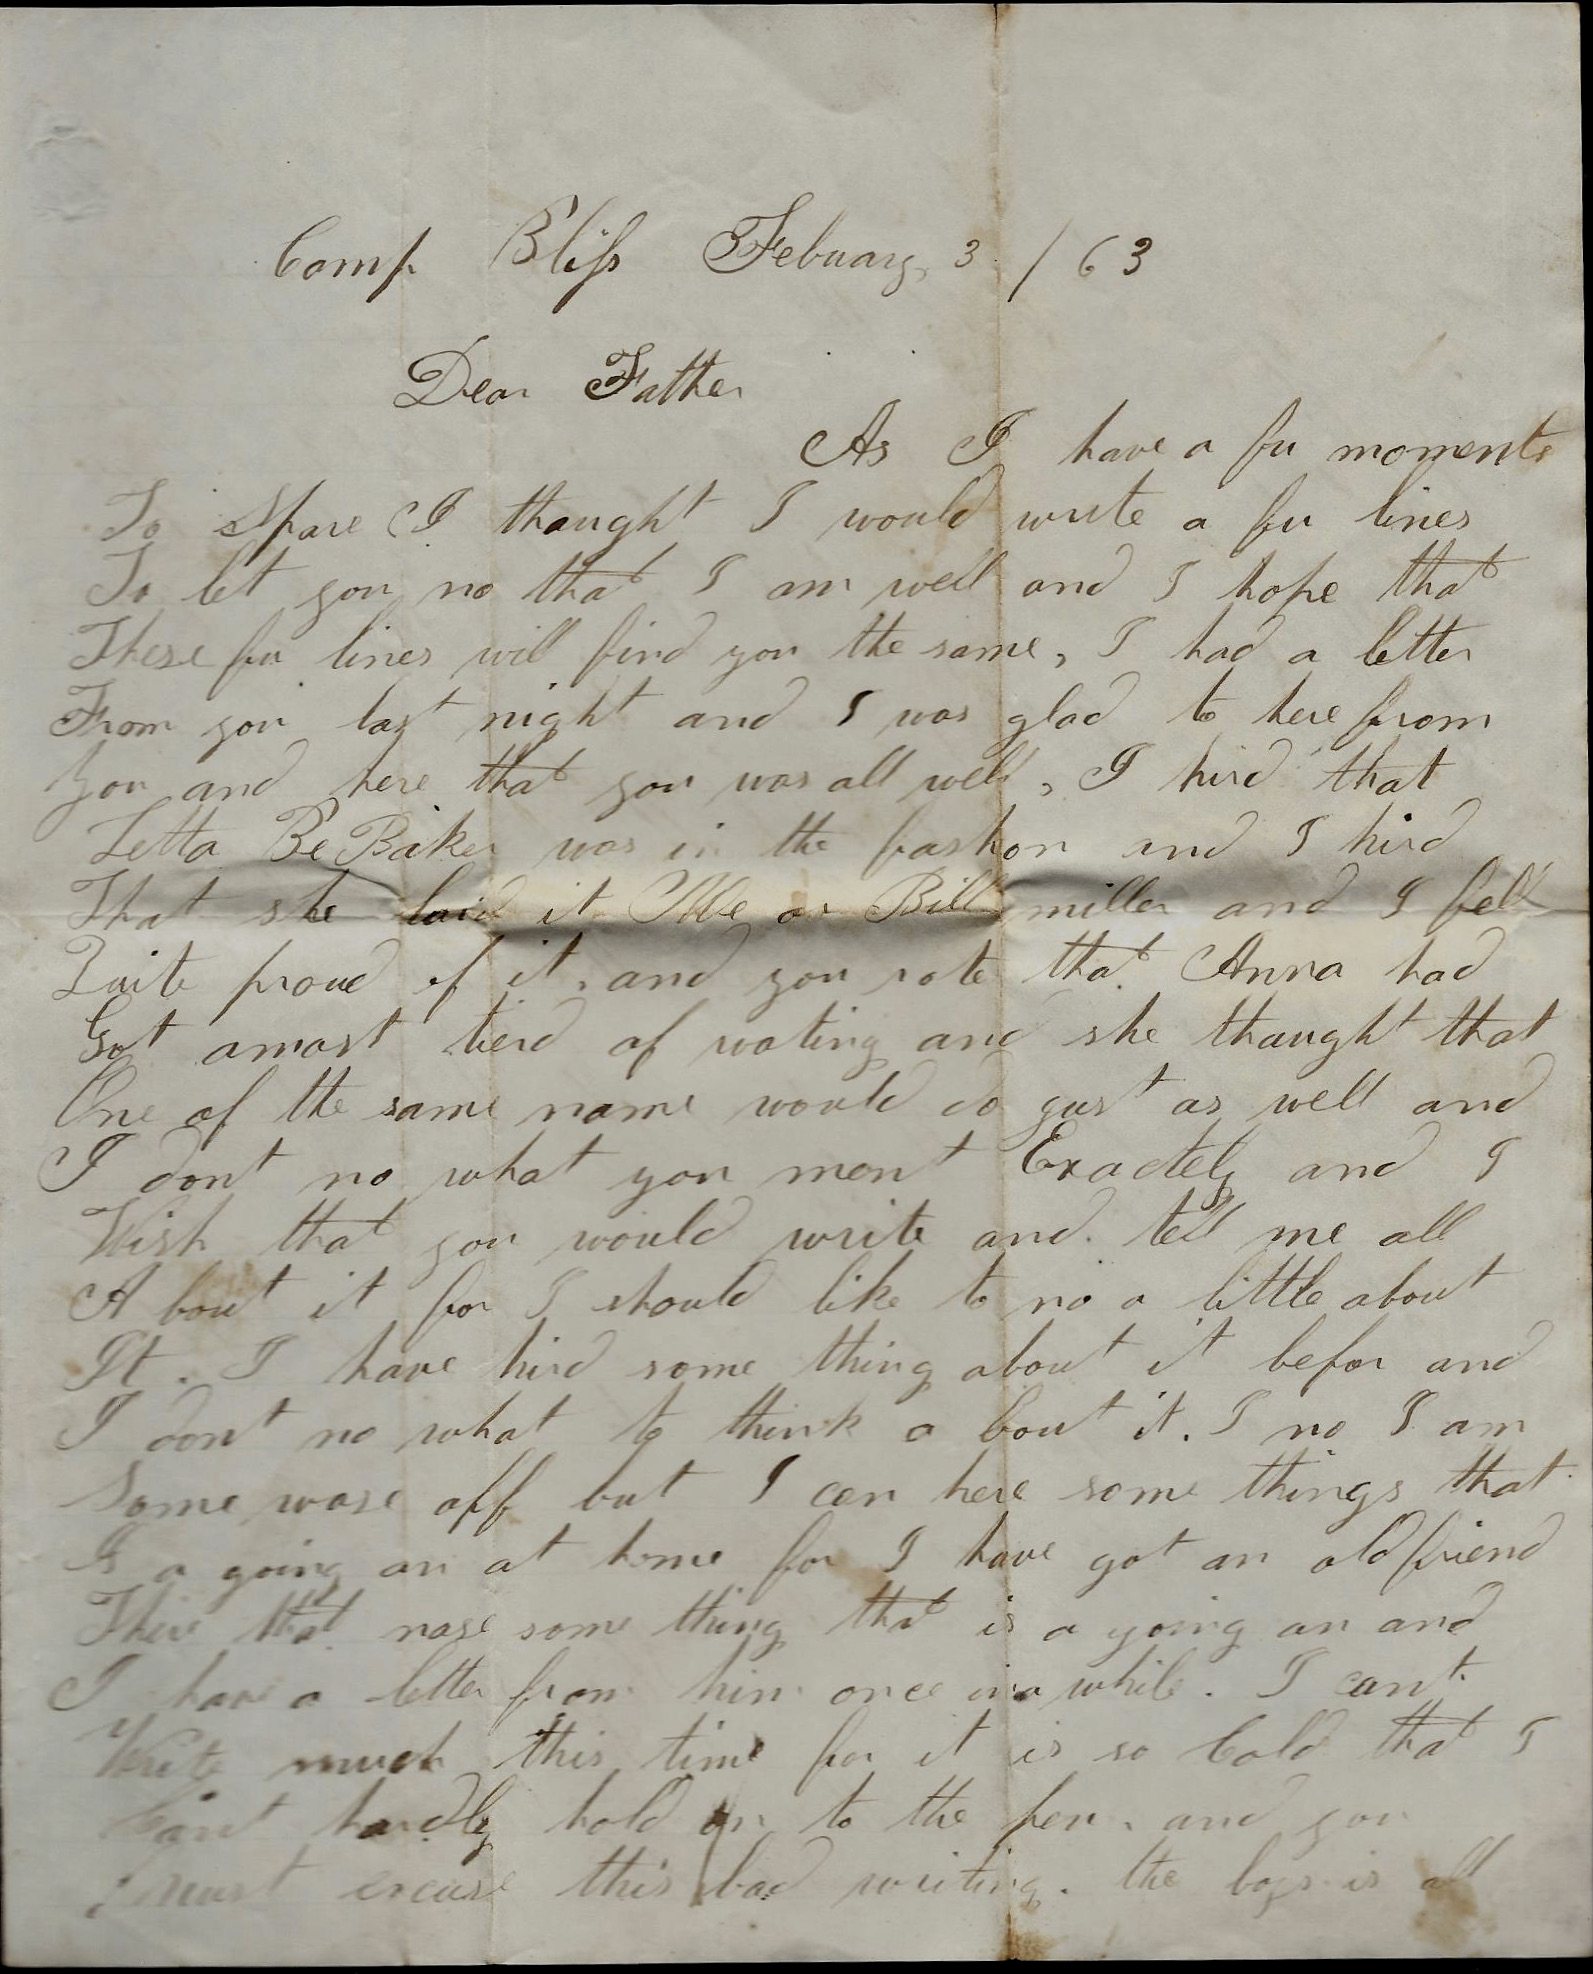 Camp Bliss Febuary, 3 / 63
Dear Father
As I have a fu moments
To Spare I thaught I would write a fu lines
To let you no that I am well and I hope that
These fu lines will find you the same, I had a letter
From you last night and I was glad to here from
You and here that you was all well, I hird that
Letta Be Baker was in the fashon and I hird
That she laid it on Bill miller and I fell
Quite proud of it. and you rote that Anna had
Got amost tierd of wating and she thaught that
One of the same name would do gust as well and
I dont no what you ment Exactely and I
Wish that you would write and tell me all
A bout it for I should like to no a little about
It. I have hird some thing about it befor and
I dont no what to think a bout it. I no I am
Some wase off but I can here some things that
Is a going on at home for I have got an old friend
There that nose some thing that is a going on and
I have a letter from him once in a while. I cant
Write much this time for it is so Cold that I
Cant hardly hold on to the pen. and you
must excuse this bad writing. the boys is all